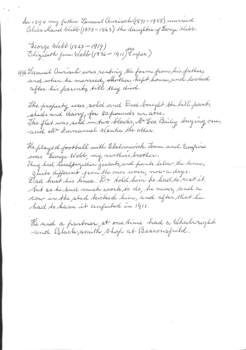 In 1894 my father Samuel Amirault (1871-1955) married
Alice Maud Webb (1873-1943) the daughter of George Webb.
George Webb (1843-1919)
Elizabeth Jane Webb (1836-1911)
Samuel was renting the farm from his father,
and when he married, Mother kept house, and looked
after his parents till they died.
The property was sold and Dad bought the hill part,
sheds and dairy, for 20 pounds an acre.
The flat was sold in two blocks, Mr Geo. Baily buying one
and Mr Immanuel the other.
He played football with Team and
was George Webb, my mother's brother.
They had pants below the knee,
quite different from the ones now-a-days.
Dad hurt his knee. Dr told him he had to rest it
but as he had much work to do, he never, and a
cow in the stall kicked him, and after that he
had to have it amputated in 1911.
He and a partner at one time had a Wheelwright
and Blacksmith shop at Beaconsfield.